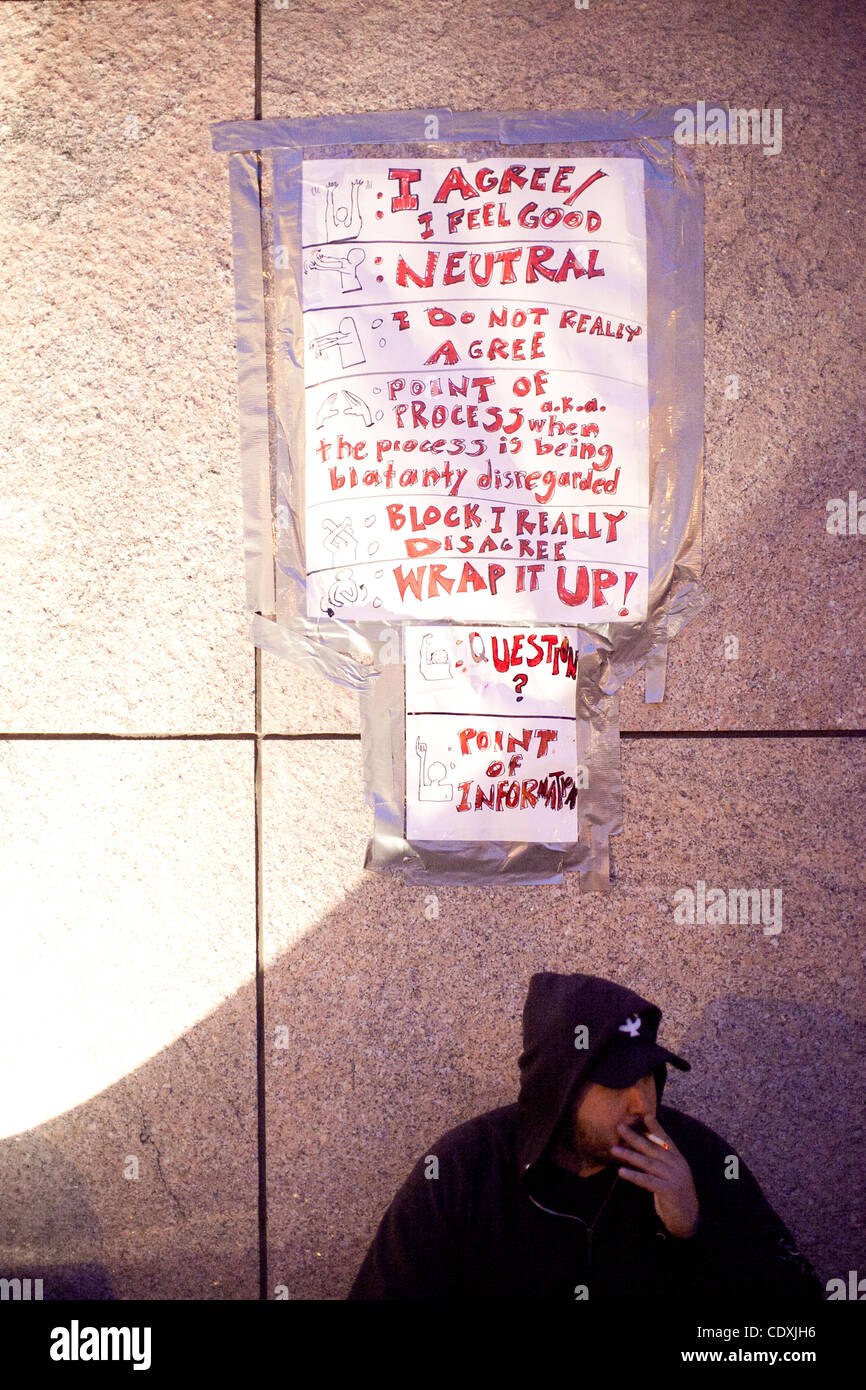 : I AGREE/
I FEEL GOOD
: NEUTRAL
: I DO NOT REALLY
AGREE
: POINT OF
PROCESS a.k.a.
when
the process is being
blatanty disregarded
: BLOCK I REALLY
DISAGREE
: WRAP IT UP!
: QUESTION
?
: POINT
OF
INFORMATION
alamy
a
a
alamy
a
a
alamy
Image ID: CDXJH6
www.alamy.com